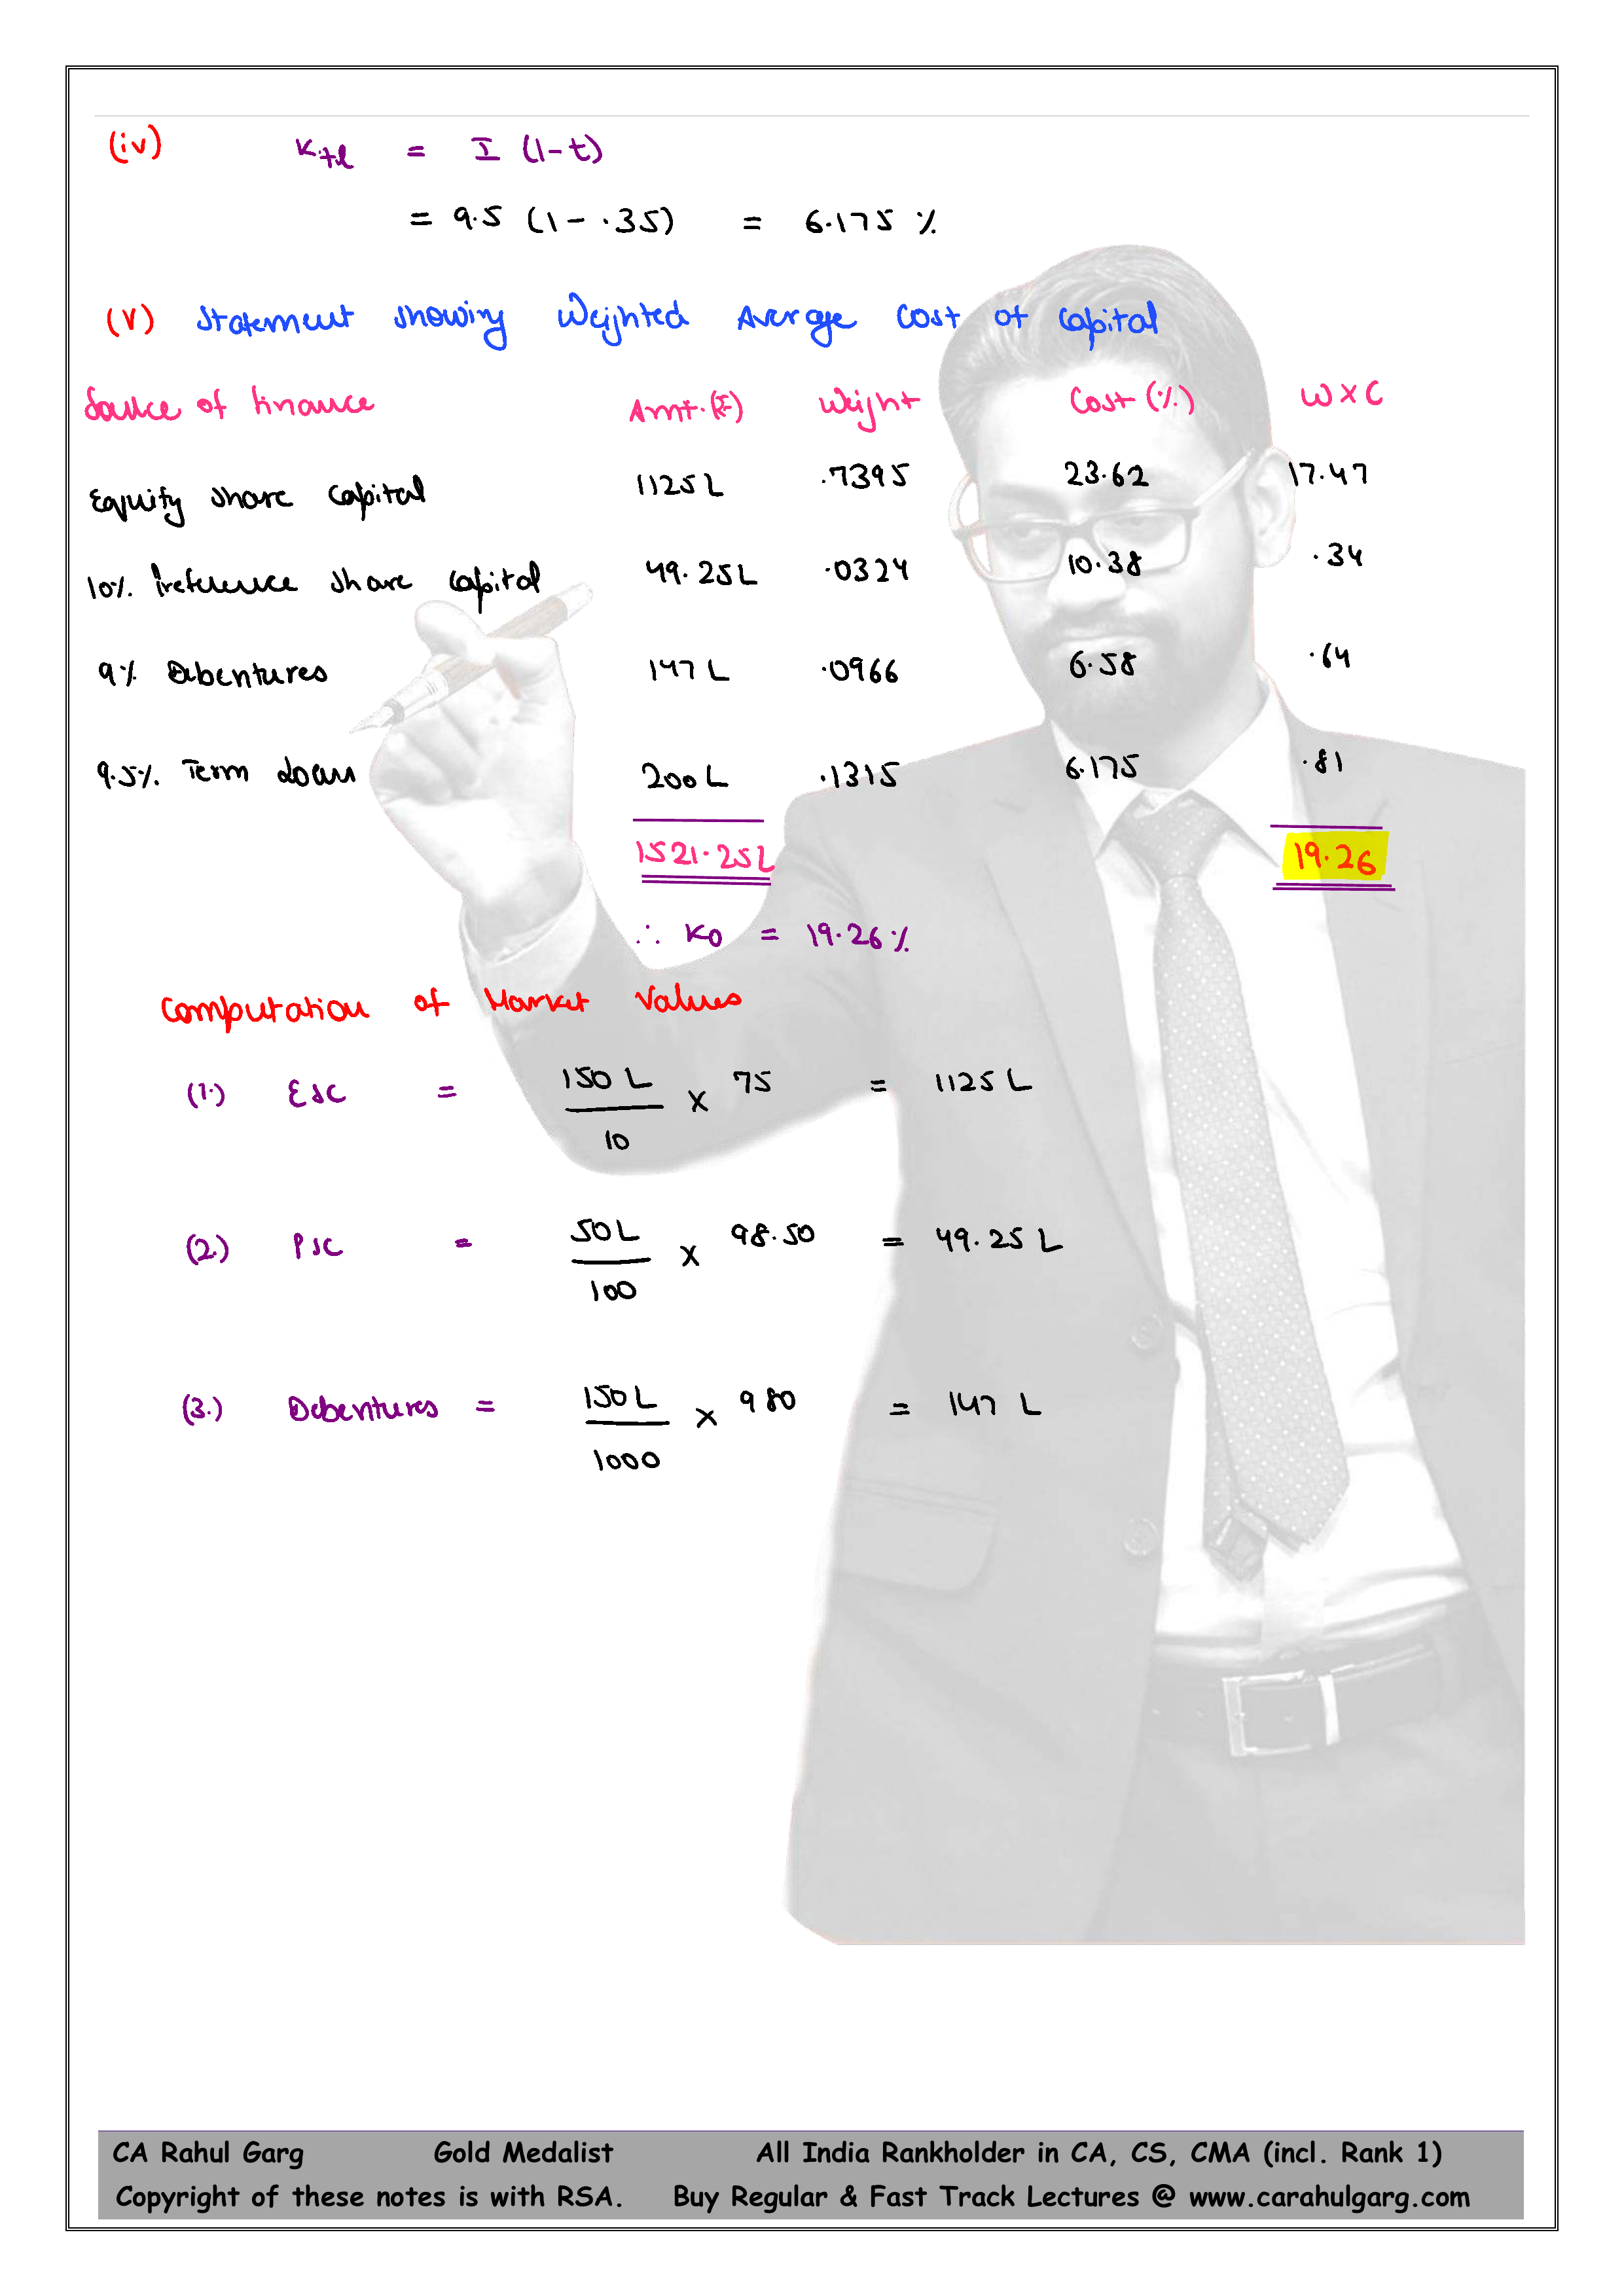 (iv) Ktl = I (1-t)
= 9.5 (1 - .35) = 6.175 %
(V) Statement showing Weighted Average Cost of Capital
Source of finance Amt.(₹) Weight Cost (%) W X C
Equity share capital 1125 L .7395 23.62 17.47
10% Preference share capital 49.25L .0324 10.38 .34
9% Debentures 147 L .0966 6.58 .64
9.5% Term Loan 200 L .1315 6.175 .81
1521.25L 19.26
∴ Ko = 19.26 %
Computation of Market Values
(1.) ESC = 150 L / 10 x 75 = 1125 L
(2.) PSC = 50L / 100 x 98.50 = 49.25 L
(3.) Debentures = 150L / 1000 x 980 = 147 L
CA Rahul Garg Gold Medalist All India Rankholder in CA, CS, CMA (incl. Rank 1)
Copyright of these notes is with RSA. Buy Regular & Fast Track Lectures @ www.carahulgarg.com